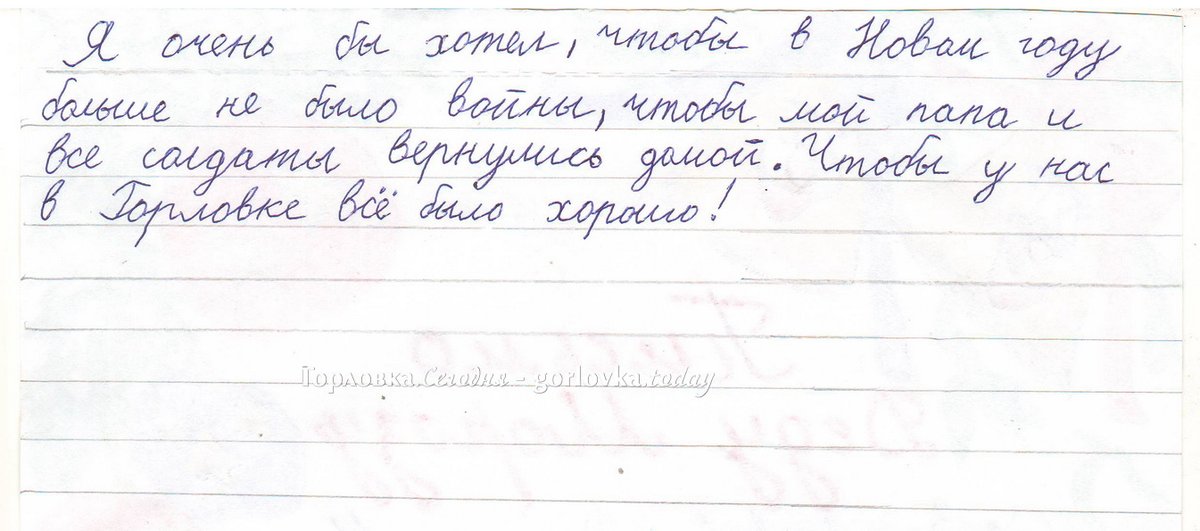 Я очень бы хотел, чтобы в Новом году
больше не было войны, чтобы мой папа и
все солдаты вернулись домой. Чтобы у нас
в Горловке всё было хорошо!
Горловка.Сегодня - gorlovka.today